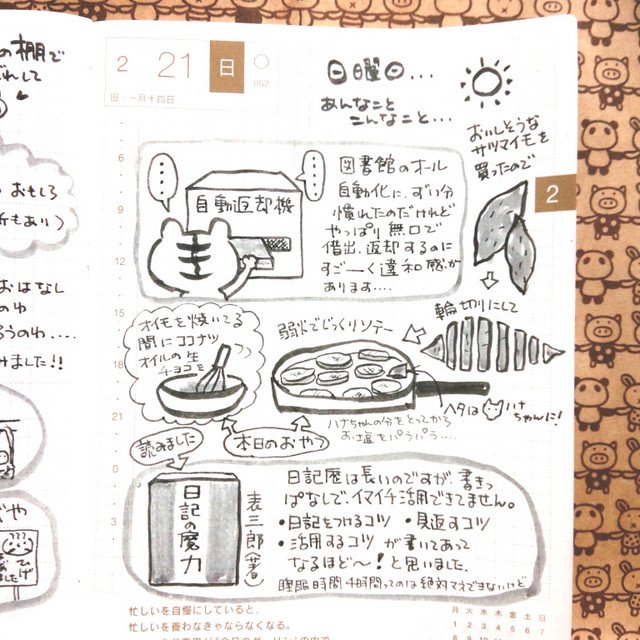 の棚で
2 21 日
052
旧:一月十四日
日曜日...
あんなこと
こんなこと...
おもしろ
所もあり)
おはなし
のゆ
るうのゆ....
みました!!
6
9
12
15
18
21
0
3
2
自動返却機
図書館のオール
自動化に、ずい分
慣れたのだけれど
やっぱり無口で
借出、返却するのに
すごーく違和感が
あります....
おいしそうな
サツマイモを
買ったので
輪切りにして
弱火でじっくりソテー
オイモを焼いてる
間にココナツ
オイルの生
チョコを
ヘタは
ハナ
ちゃんに!
ハナちゃんの分をとってから
お塩をパラパラ....
本日のおやつ
読みました
日記の魔力
表三郎(著)
日記歴は長いのですが、書きっ
ぱなしで、イマイチ活用できてません。
・日記をつけるコツ ・見返すコツ
・活用するコツ が書いてあって
なるほど~!と思いました。
睡眠時間4時間ってのは絶対マネできないけど
忙しいを自慢にしていると、
忙しいを養わなきゃならなくなる。
月 火 水 木 金 土 日
1 2 3 4 5 6 7